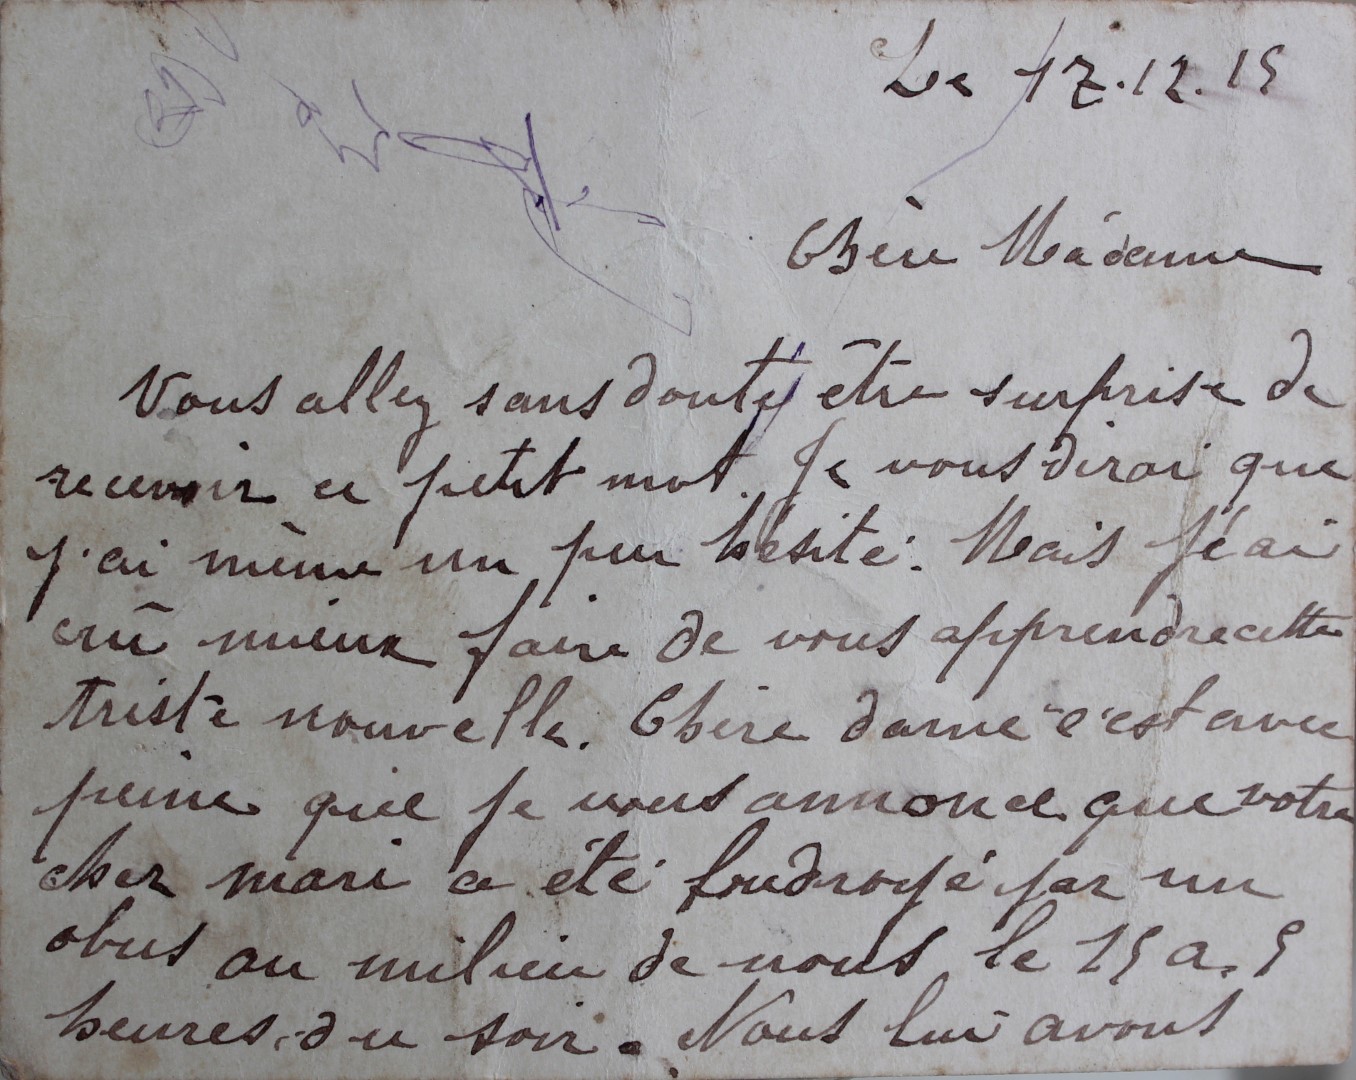 Le 17.12.15
Chère Madame
Vous allez sans doute être surprise de
recevoir ce petit mot. Je vous dirai que
j'ai même un peu hésité. Mais j'ai
crû mieux faire de vous apprendre cette
triste nouvelle. Chère dame c'est avec
peine que je vous annonce que votre
cher mari a été foudroyé par un
obus au milieu de nous le 15 a. 5
heures du soir. Nous lui avons